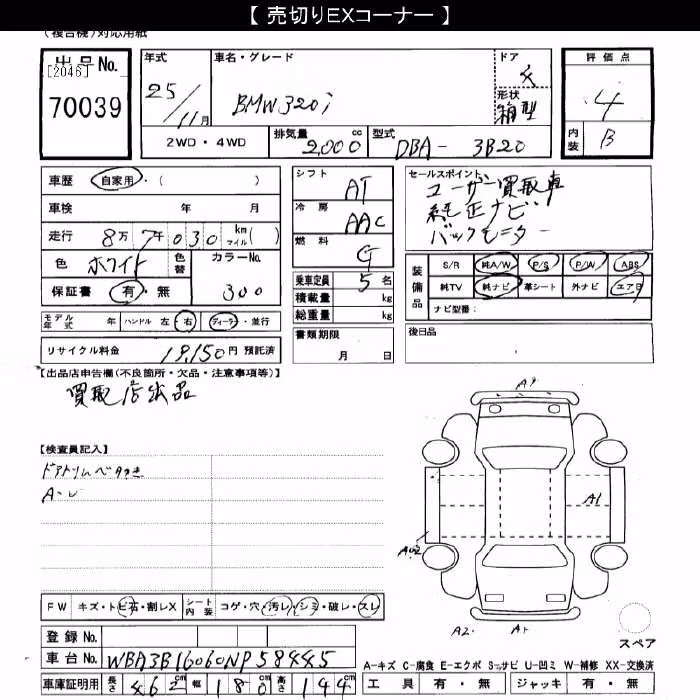 【 売切りEXコーナー 】
(複合機)対応用紙
出品No.
[2046]
70039
年式
25/11月
車名・グレード
BMW320i
ドア
4
形状
箱型
評価点
4
内装
B
2WD・4WD
排気量
2,000 cc
型式
DBA-3B20
車歴
自家用・( )
車検 年 月
走行 8万 7千 0 3 0 km マイル( )
色 ホワイト
色替
カラーNo.
300
保証書 有・無
シフト AT
冷房 AAC
燃料 G
乗車定員 5 名
積載量 kg
総重量 kg
書類期限
月 日
セールスポイント
ユーザー買取車
純正ナビ
バックモニター
装備
S/R 純A/W P/S P/W ABS
純TV 純ナビ 革シート 外ナビ エアB
ナビ型番:
後日品
モデル年式 年 ハンドル 左・右 ディーラー・並行
リサイクル料金 19,150円 預託済
【出品店申告欄(不良箇所・欠品・注意事項等)】
買取店出品
【検査員記入】
ドアトリムベタつき
A・U
A9
A1
A02
A2
A1
FW キズ・トビ石・割レX
シート内装 コゲ・穴・汚レ・シミ・破レ・スレ
スペア
登録No.
車台No. WBA3B16060NP58445
車庫証明用 長さ 462 cm 幅 180 cm 高さ 144 cm
A-キズ C-腐食 E-エクボ S-サビ U-凹ミ W-補修 XX-交換済
工具 有・無 ジャッキ 有・無